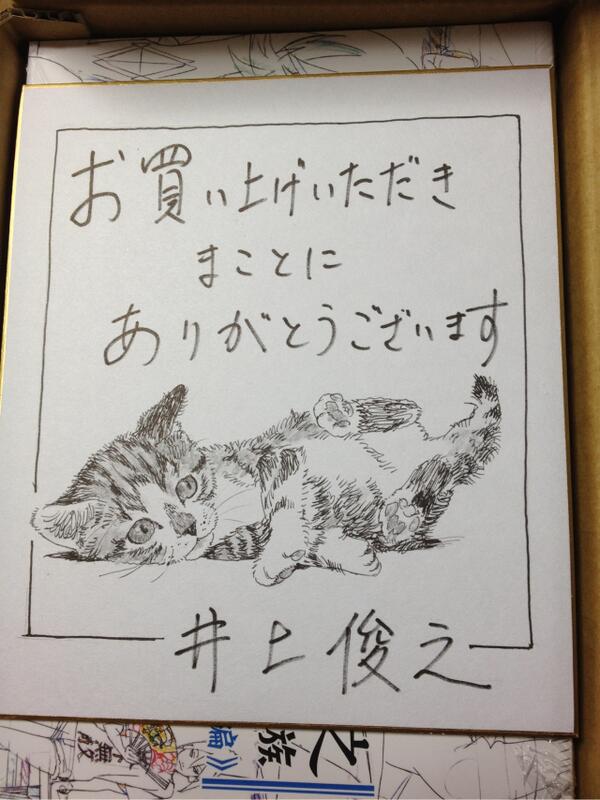 お買い上げいただき
まことに
ありがとうございます
井上俊之
族
編》
無敵